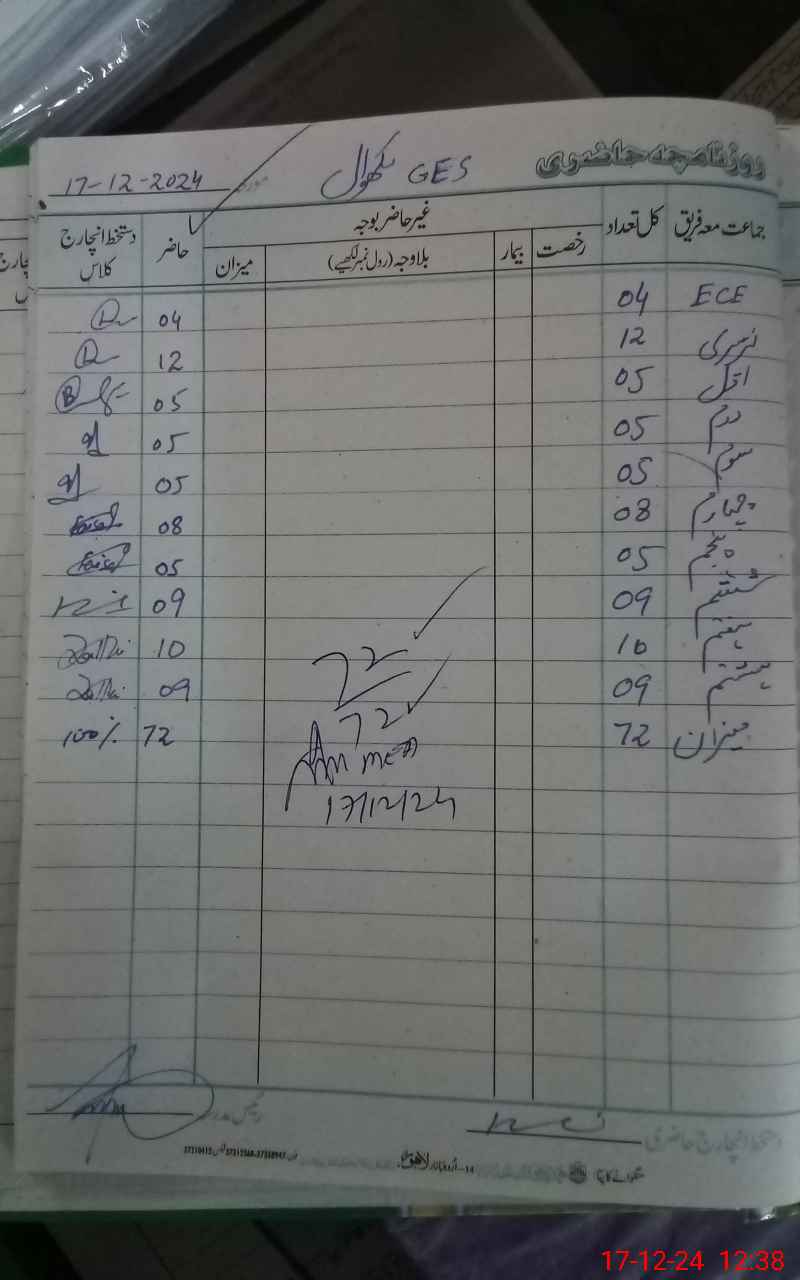 روزنامچہ حاضری
GES
17-12-2024
جماعت معہ فریق کل تعداد غیر حاضر بوجہ حاضر دستخط انچارج کلاس
رخصت بیمار بلاوجہ (رول نمبر لکھیے) میزان
ECE 04 04
نرسری 12 12
اول 05 05
دوم 05 05
سوم 05 05
چہارم 08 08 Faisal
پنجم 05 05 Faisal
ششم 09 09
ہفتم 10 10
ہشتم 09 09
میزان 72 72 100%
72
72
17/12/24
دستخط انچارج حاضری
17-12-24 12:38